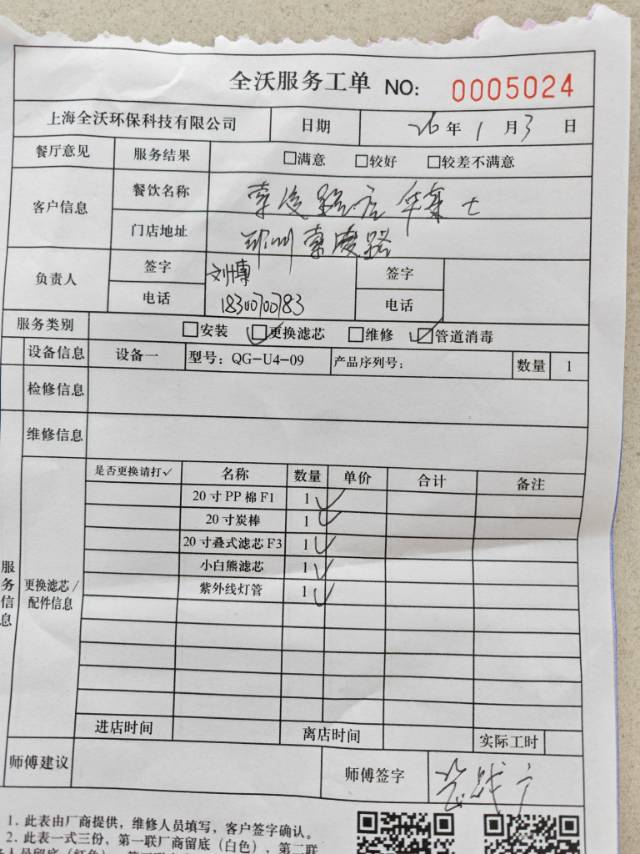 全沃服务工单 NO: 0005024
上海全沃环保科技有限公司 日期 26年1月3日
餐厅意见 服务结果 □满意 □较好 □较差不满意
客户信息 餐饮名称 华莱士
门店地址 郑州 路
负责人 签字 刘博 签字
电话 18300700783 电话
服务类别 □安装 ☑更换滤芯 □维修 ☑管道消毒
设备信息 设备一 型号：QG-U4-09 产品序列号： 数量 1
检修信息
维修信息
服务信息
更换滤芯/配件信息
是否更换请打✓ 名称 数量 单价 合计 备注
20寸PP棉F1 1 ✓
20寸炭棒 1 ✓
20寸叠式滤芯F3 1 ✓
小白熊滤芯 1 ✓
紫外线灯管 1 ✓
进店时间 离店时间 实际工时
师傅建议 师傅签字
1. 此表由厂商提供，维修人员填写，客户签字确认。
2. 此表一式三份，第一联厂商留底（白色），第二联